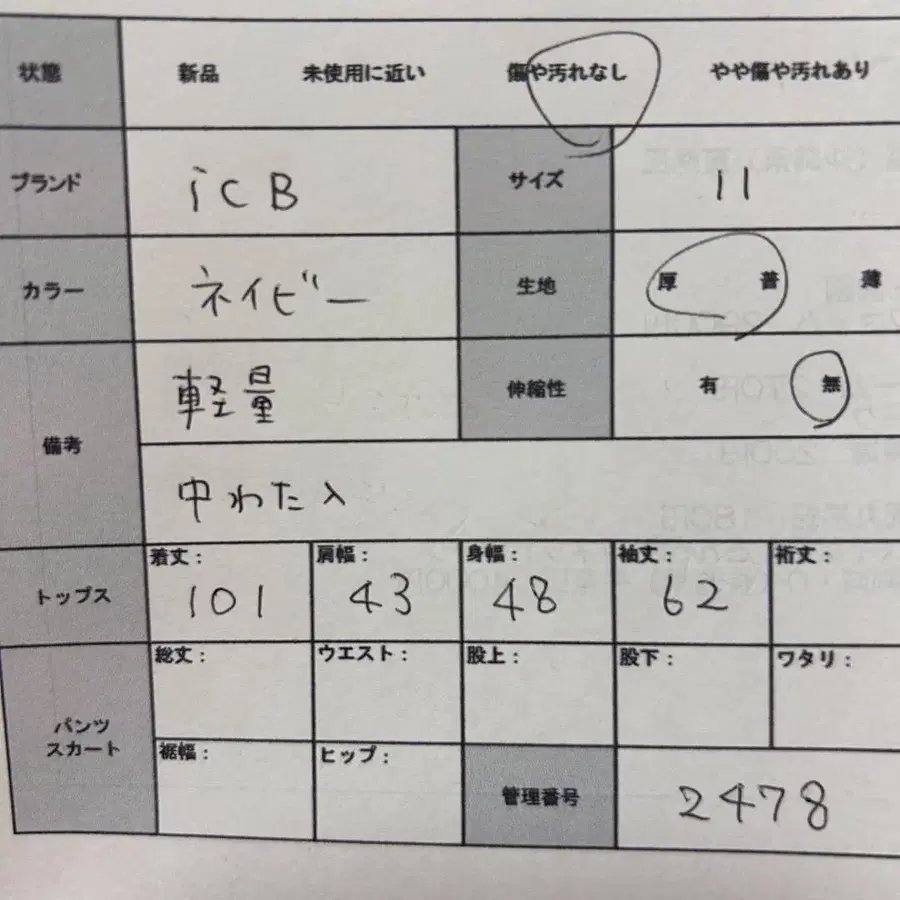 状態 新品 未使用に近い 傷や汚れなし やや傷や汚れあり
ブランド iCB サイズ 11
カラー ネイビー 生地 厚 普 薄
備考 軽量 伸縮性 有 無
中わた入
トップス 着丈: 101 肩幅: 43 身幅: 48 袖丈: 62 裄丈:
パンツ スカート 総丈: ウエスト: 股上: 股下: ワタリ:
裾幅: ヒップ: 管理番号 2478